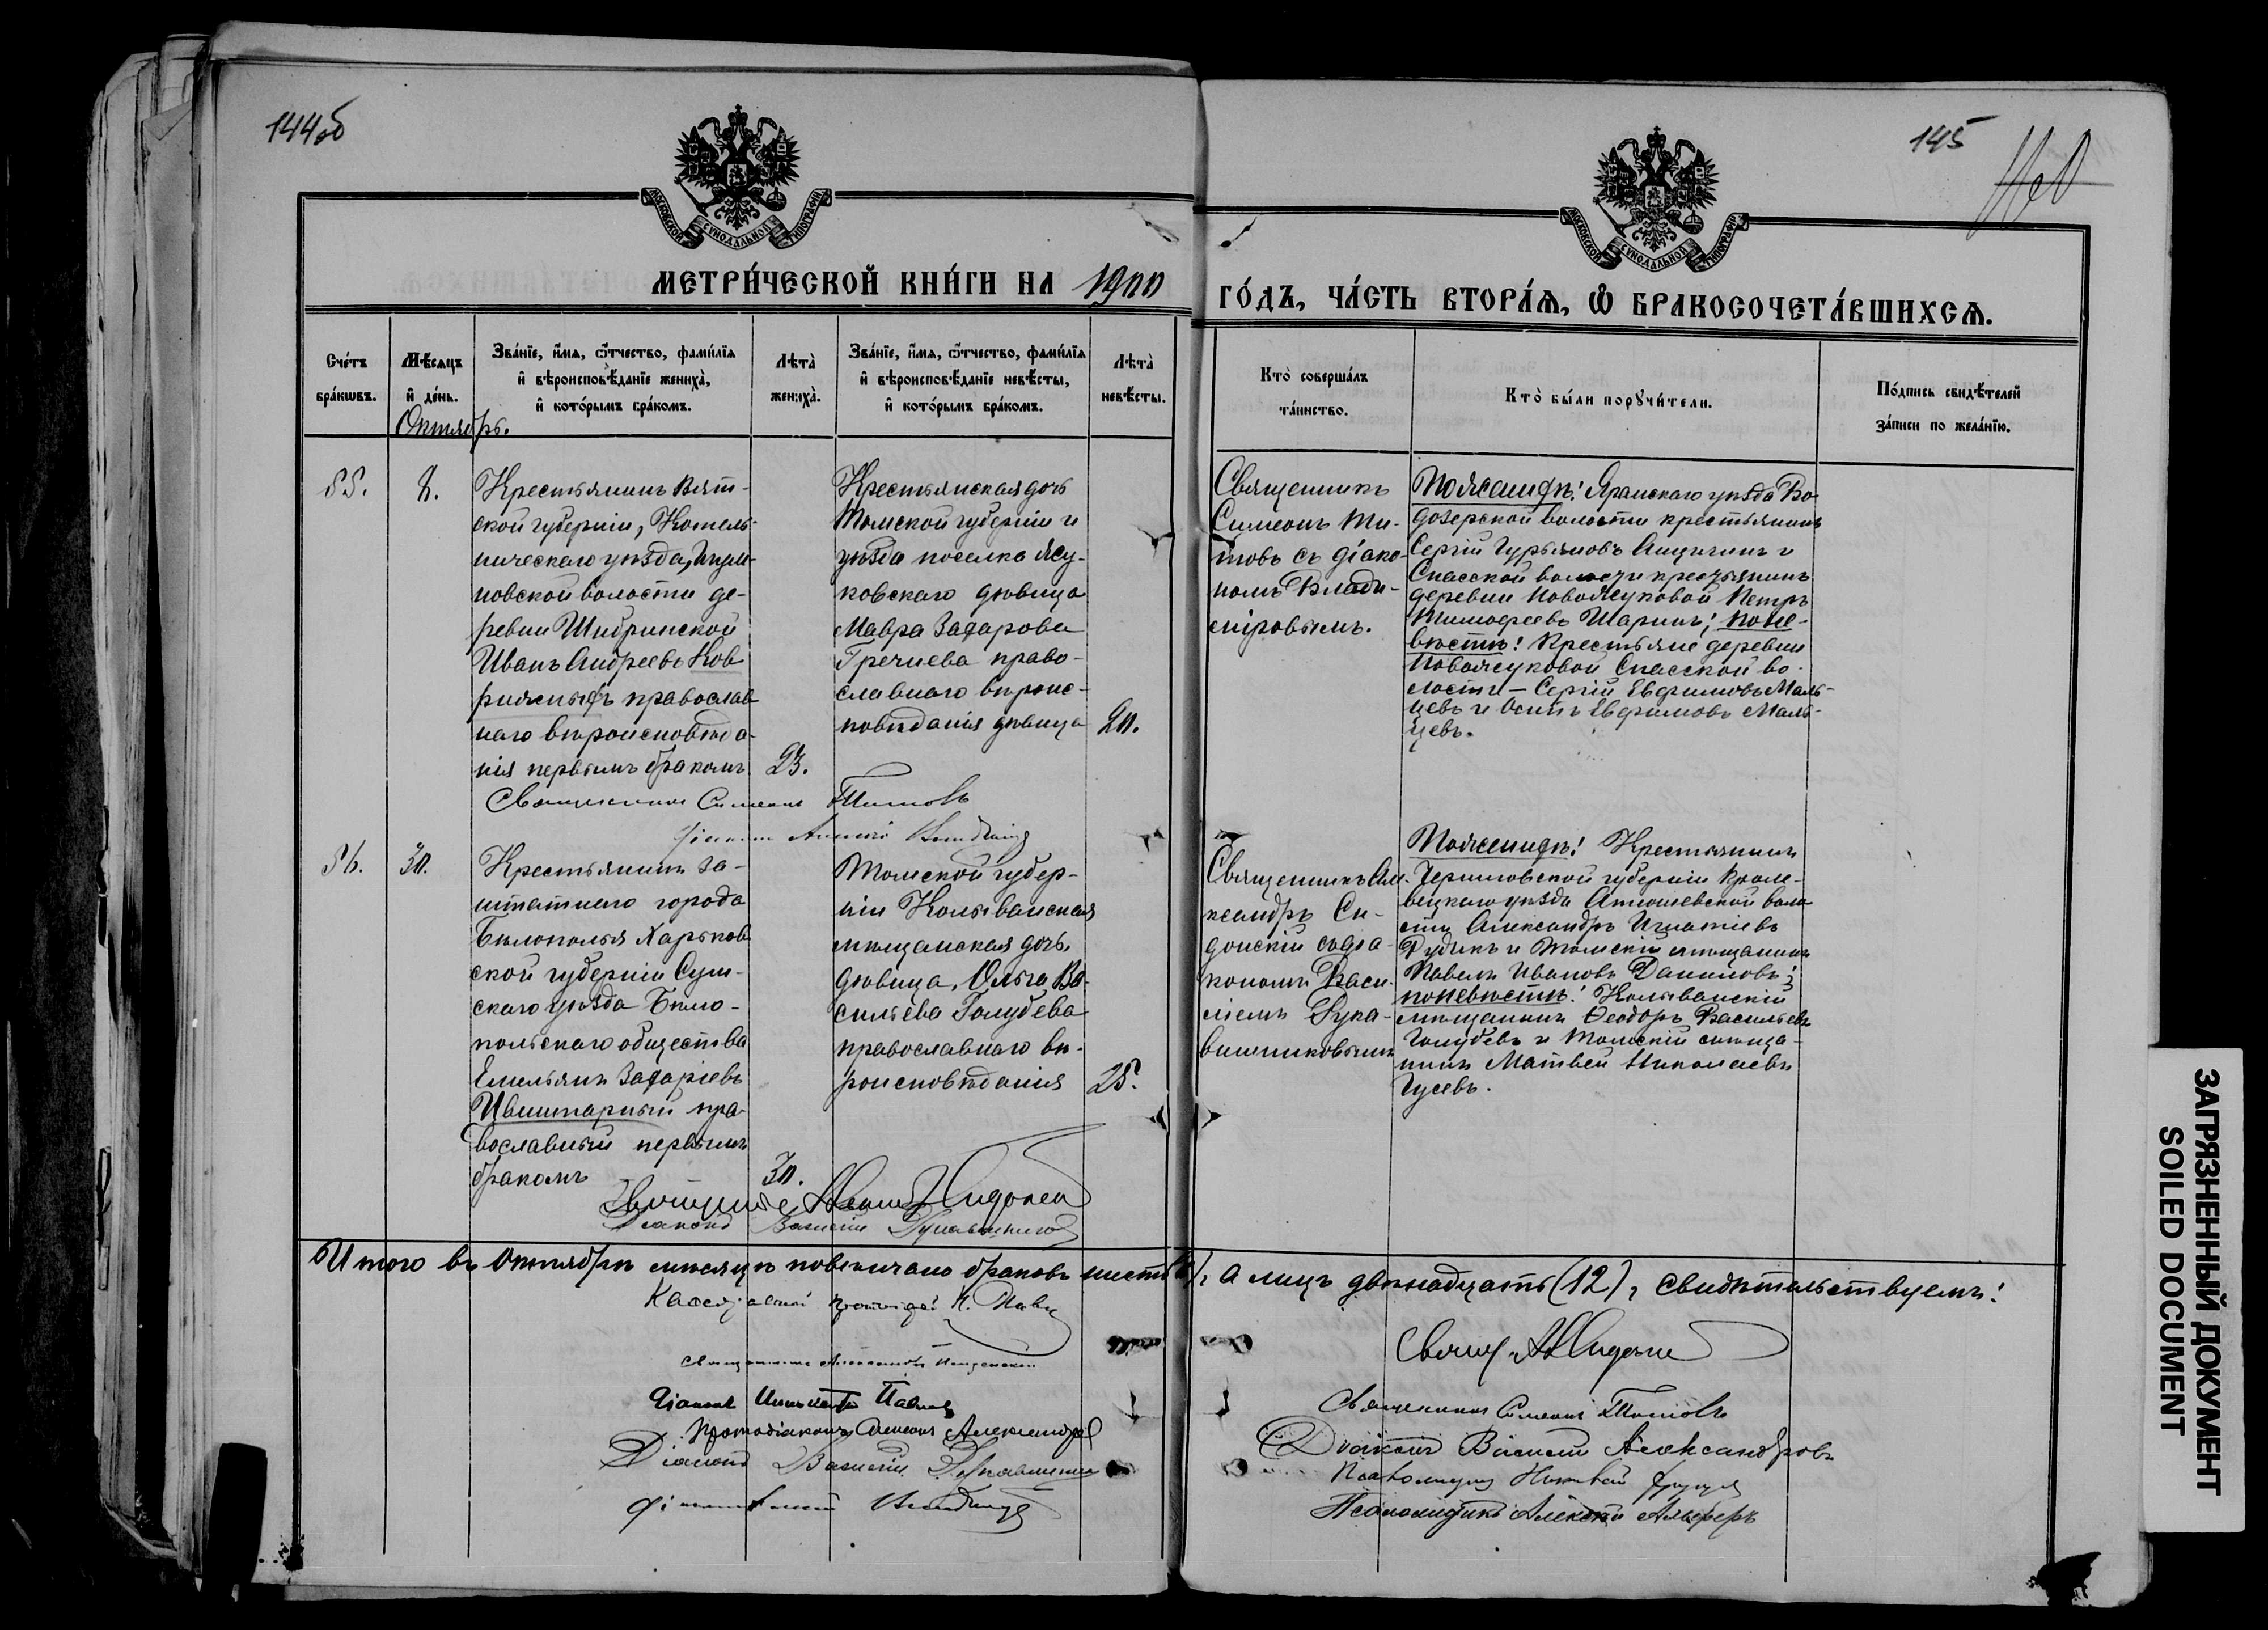 144об
145
МОСКОВСКОЙ СѴНОДАЛЬНОЙ ТИПОГРАФІИ
МОСКОВСКОЙ СѴНОДАЛЬНОЙ ТИПОГРАФІИ
МЕТРИ́ЧЕСКОЙ КНИ́ГИ НА 1900
ГО́ДЪ, ЧА́СТЬ ВТОРА́Ѧ, Ѽ БРАКОСОЧЕТА́ВШИХСѦ.
Сче́тъ
бра́кѡвъ.
Мѣ́сѧцъ
и҆ де́нь.
Зва́нїе, и҆́мѧ, ѻ҆́тчество, фами́лїѧ
и҆ вѣроисповѣ́данїе жениха̀,
и҆ кото́рымъ бра́комъ.
Лѣта̀
жениха̀.
Зва́нїе, и҆́мѧ, ѻ҆́тчество, фами́лїѧ
и҆ вѣроисповѣ́данїе невѣ́сты,
и҆ кото́рымъ бра́комъ.
Лѣта̀
невѣ́сты.
Кто̀ соверша́лъ
та́инство.
Кто̀ бы́ли порꙋчи́тели.
По́дпись свидѣ́телей
за́писи по жела́нїю.
Октябрь.
55.
8.
Крестьянинъ Вят-
ской губерніи, Котель-
ническаго уѣзда,
новской волости де-
ревни Шибринской
Иванъ Андреевъ Ков-
рижныхъ православ
наго вѣроисповѣда-
нія первымъ бракомъ
23.
Крестьянская дочь
Томской губерніи и
уѣзда поселка Ясу-
ковскаго дѣвица
Мавра Захарова
Гречнева право-
славнаго вѣроис-
повѣданія дѣвица
20.
Священникъ
Симеонъ Ти-
товъ съ діако-
номъ Влади-
міровымъ.
Пожениху: Яранскаго уѣзда Во-
дозерской волости крестьянинъ
Сергій Гурьяновъ и
Спасской волости крестьянинъ
деревни Новоясуковой Петръ
Тимофеевъ Шаринъ; поне-
вѣстѣ: Крестьяне деревни
Новоясуковой Спасской во-
лости – Сергій Евфимовъ Маль-
цевъ и Осипъ Евфимовъ Маль-
цевъ.
Священникъ Симеонъ Титовъ
56.
30.
Крестьянинъ за-
штатнаго города
Бѣлополья Харьков
ской губерніи Сум-
скаго уѣзда Бѣло-
польскаго общества
Емельянъ Захаріевъ
Ивиитарный пра-
вославный первымъ
бракомъ
30.
Томской губер-
ніи Колыванская
мѣщанская дочь
дѣвица, Ольга Ва-
сильева Голубева
православнаго вѣ-
роисповѣданія
25.
Священникъ Але-
ксандръ Си-
донскій съ діа-
кономъ Васи-
ліемъ Рука-
вишниковымъ
Пожениху: Крестьянинъ
Черниговской губерніи Кроле-
вецкаго уѣзда Атюшевской воло
сти Александръ Игнатіевъ
Рудикъ и Томскій мѣщанинъ
Павелъ Ивановъ Даниловъ;
поневѣстѣ: Колыванскій
мѣщанинъ Ѳеодоръ Васильевъ
Голубевъ и Томскій мѣща-
нинъ Матвей Николаевъ
Гусевъ.
Діаконъ Василій Рукавишниковъ
Итого въ Октябрѣ мѣсяцѣ повѣнчано браковъ шесть (6), а лицъ двѣнадцать (12), свидѣтельствуемъ:
Священникъ
Діаконъ Иннокентій Павловъ
Протодіаконъ Симеонъ Александровъ
Діаконъ Василій Рукавишниковъ
Свящ. А. Сидонскій
Священникъ Симеонъ Титовъ
Діаконъ Василій Александровъ
Псаломщикъ
Псаломщикъ Алексѣй Альферъ
ЗАГРЯЗНЕННЫЙ ДОКУМЕНТ
SOILED DOCUMENT